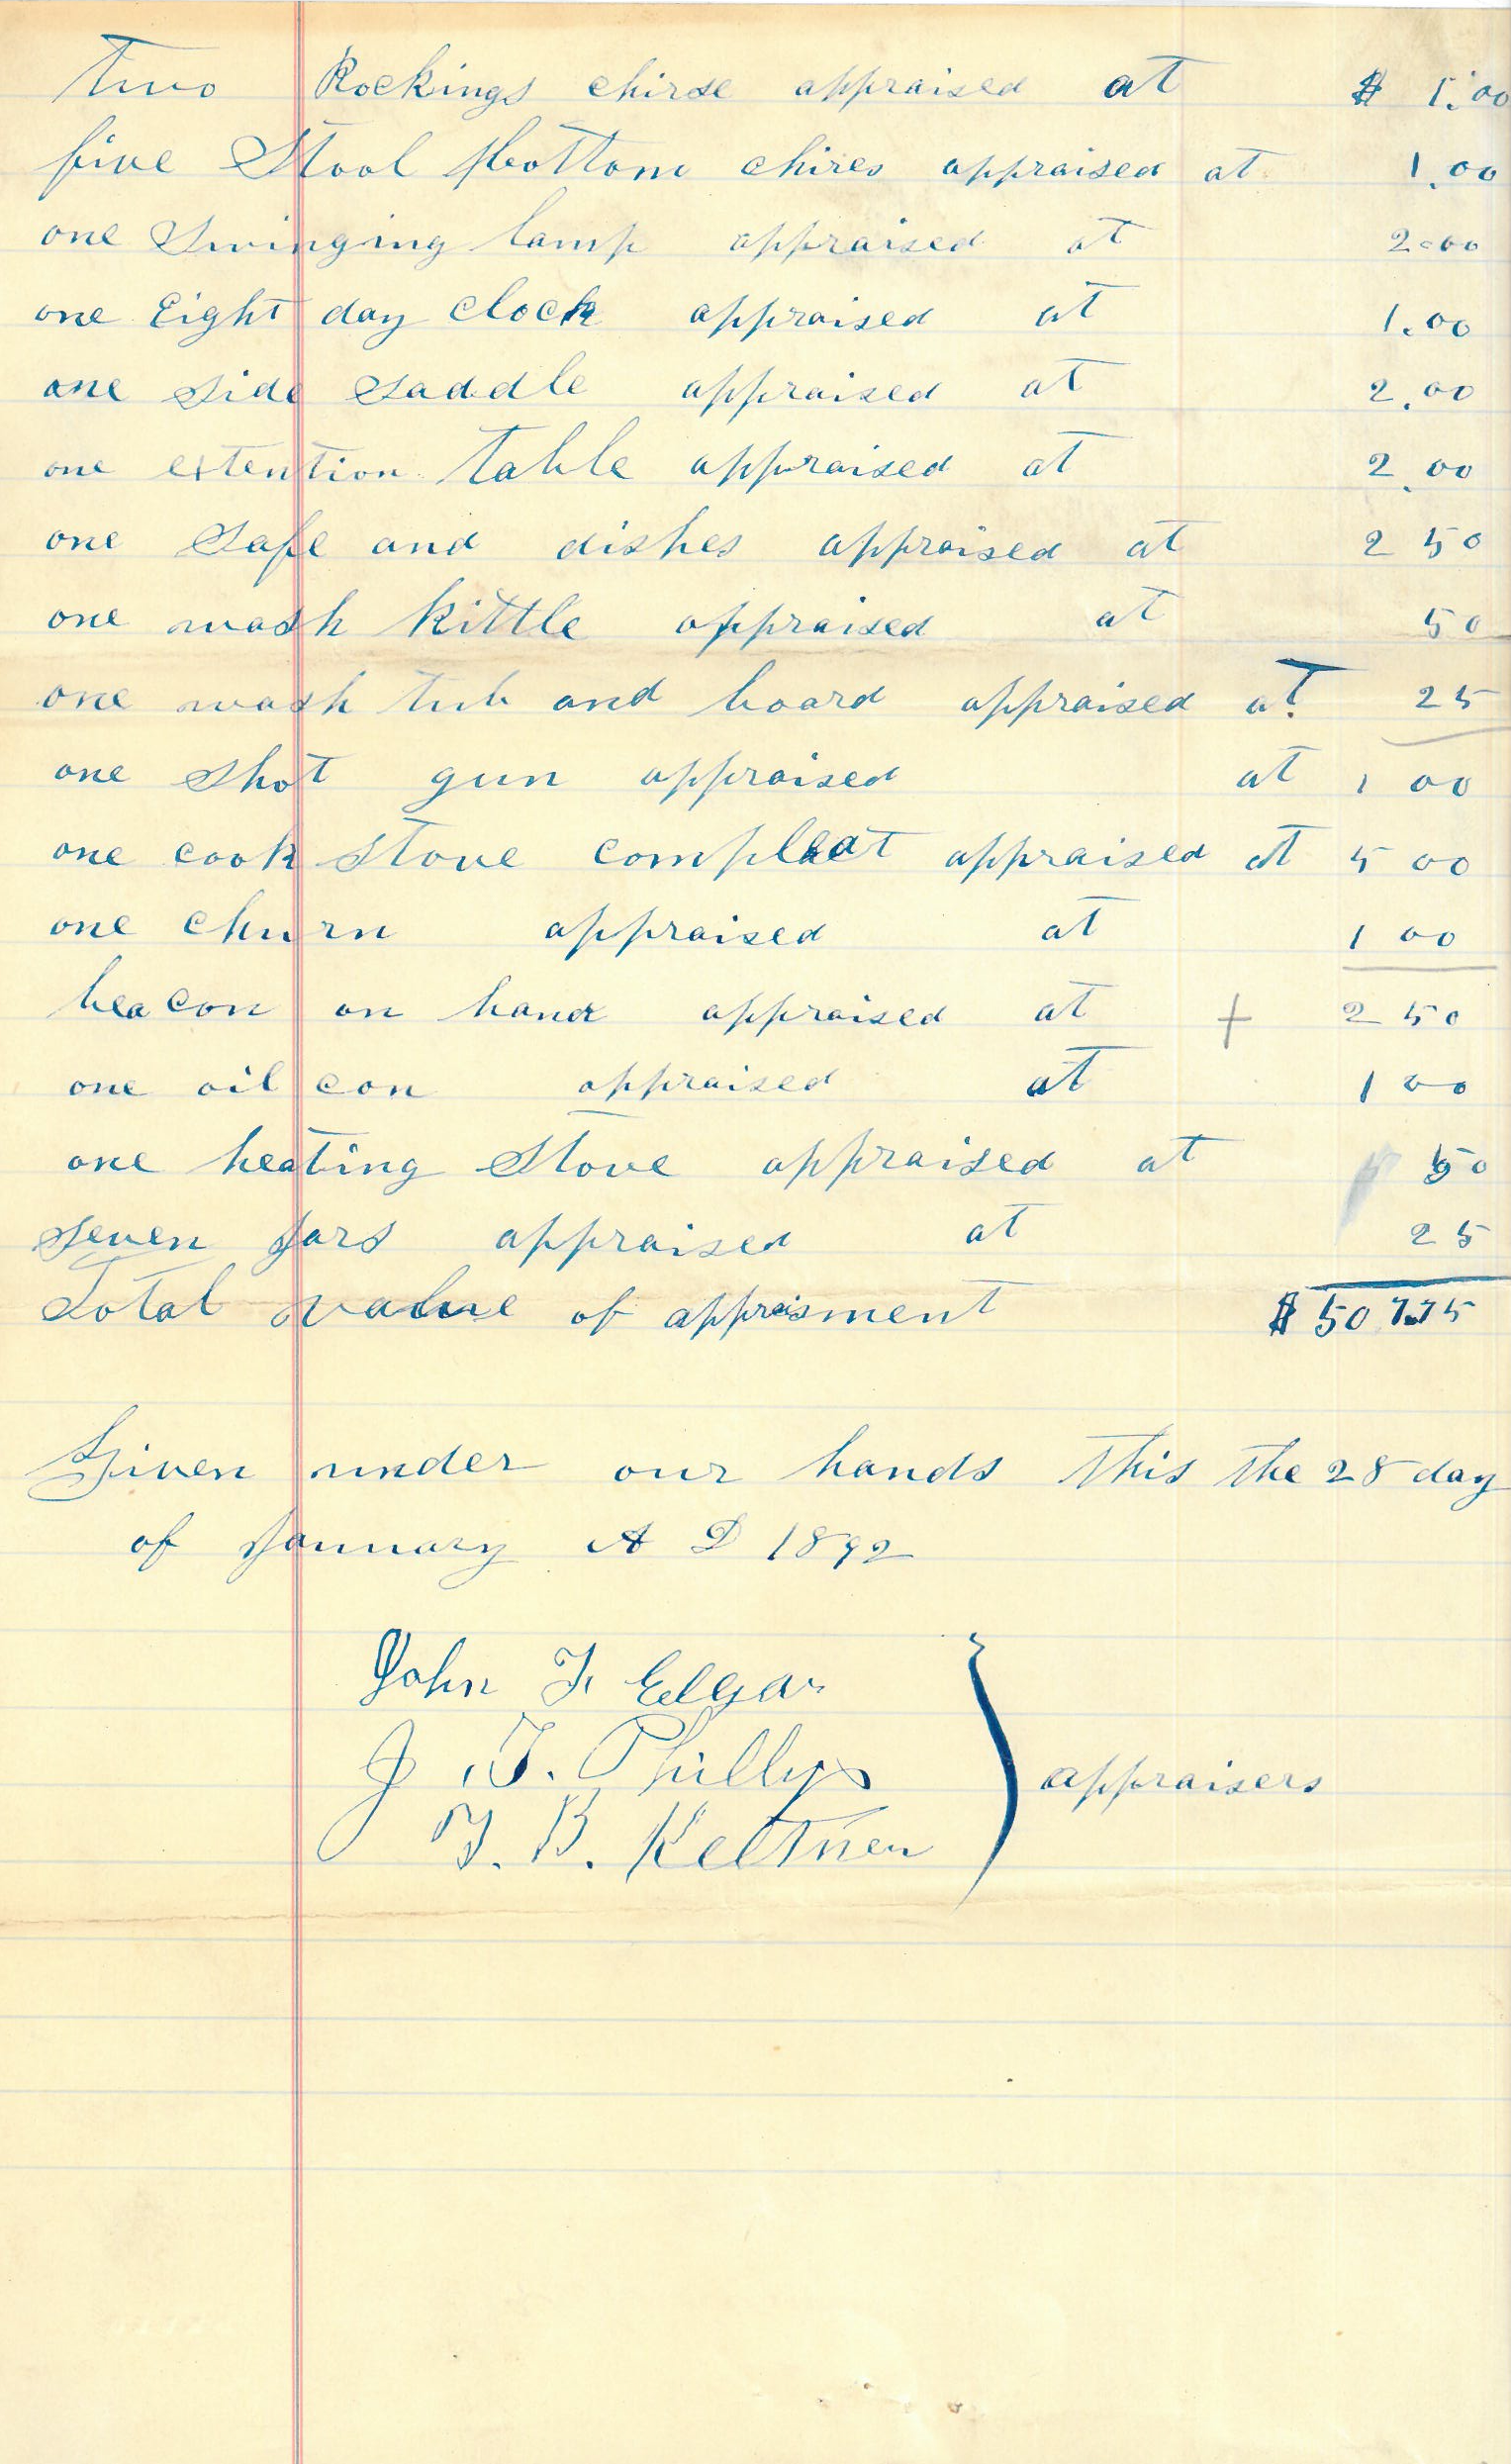 Two Rockings chirse appraised at $ 1.00
five Stool bottom chires appraised at 1.00
one Swinging lamp appraised at 2.00
one Eight day clock appraised at 1.00
one side saddle appraised at 2.00
one extention table appraised at 2.00
one Safe and dishes appraised at 2 50
one wash kittle appraised at 50
one wash tub and board appraised at 25
one shot gun appraised at 1 00
one cook stove compleat appraised at 5 00
one churn appraised at 1 00
beacon on hand appraised at + 2 50
one oil can appraised at 1 00
one heating Stove appraised at 50
seven Jars appraised at 25
Total value of appraisment $ 507.75
Given under our hands this the 28 day
of January A D 1892
John F. Edgar
J. T. Phillips appraisers
T. B. Keltner